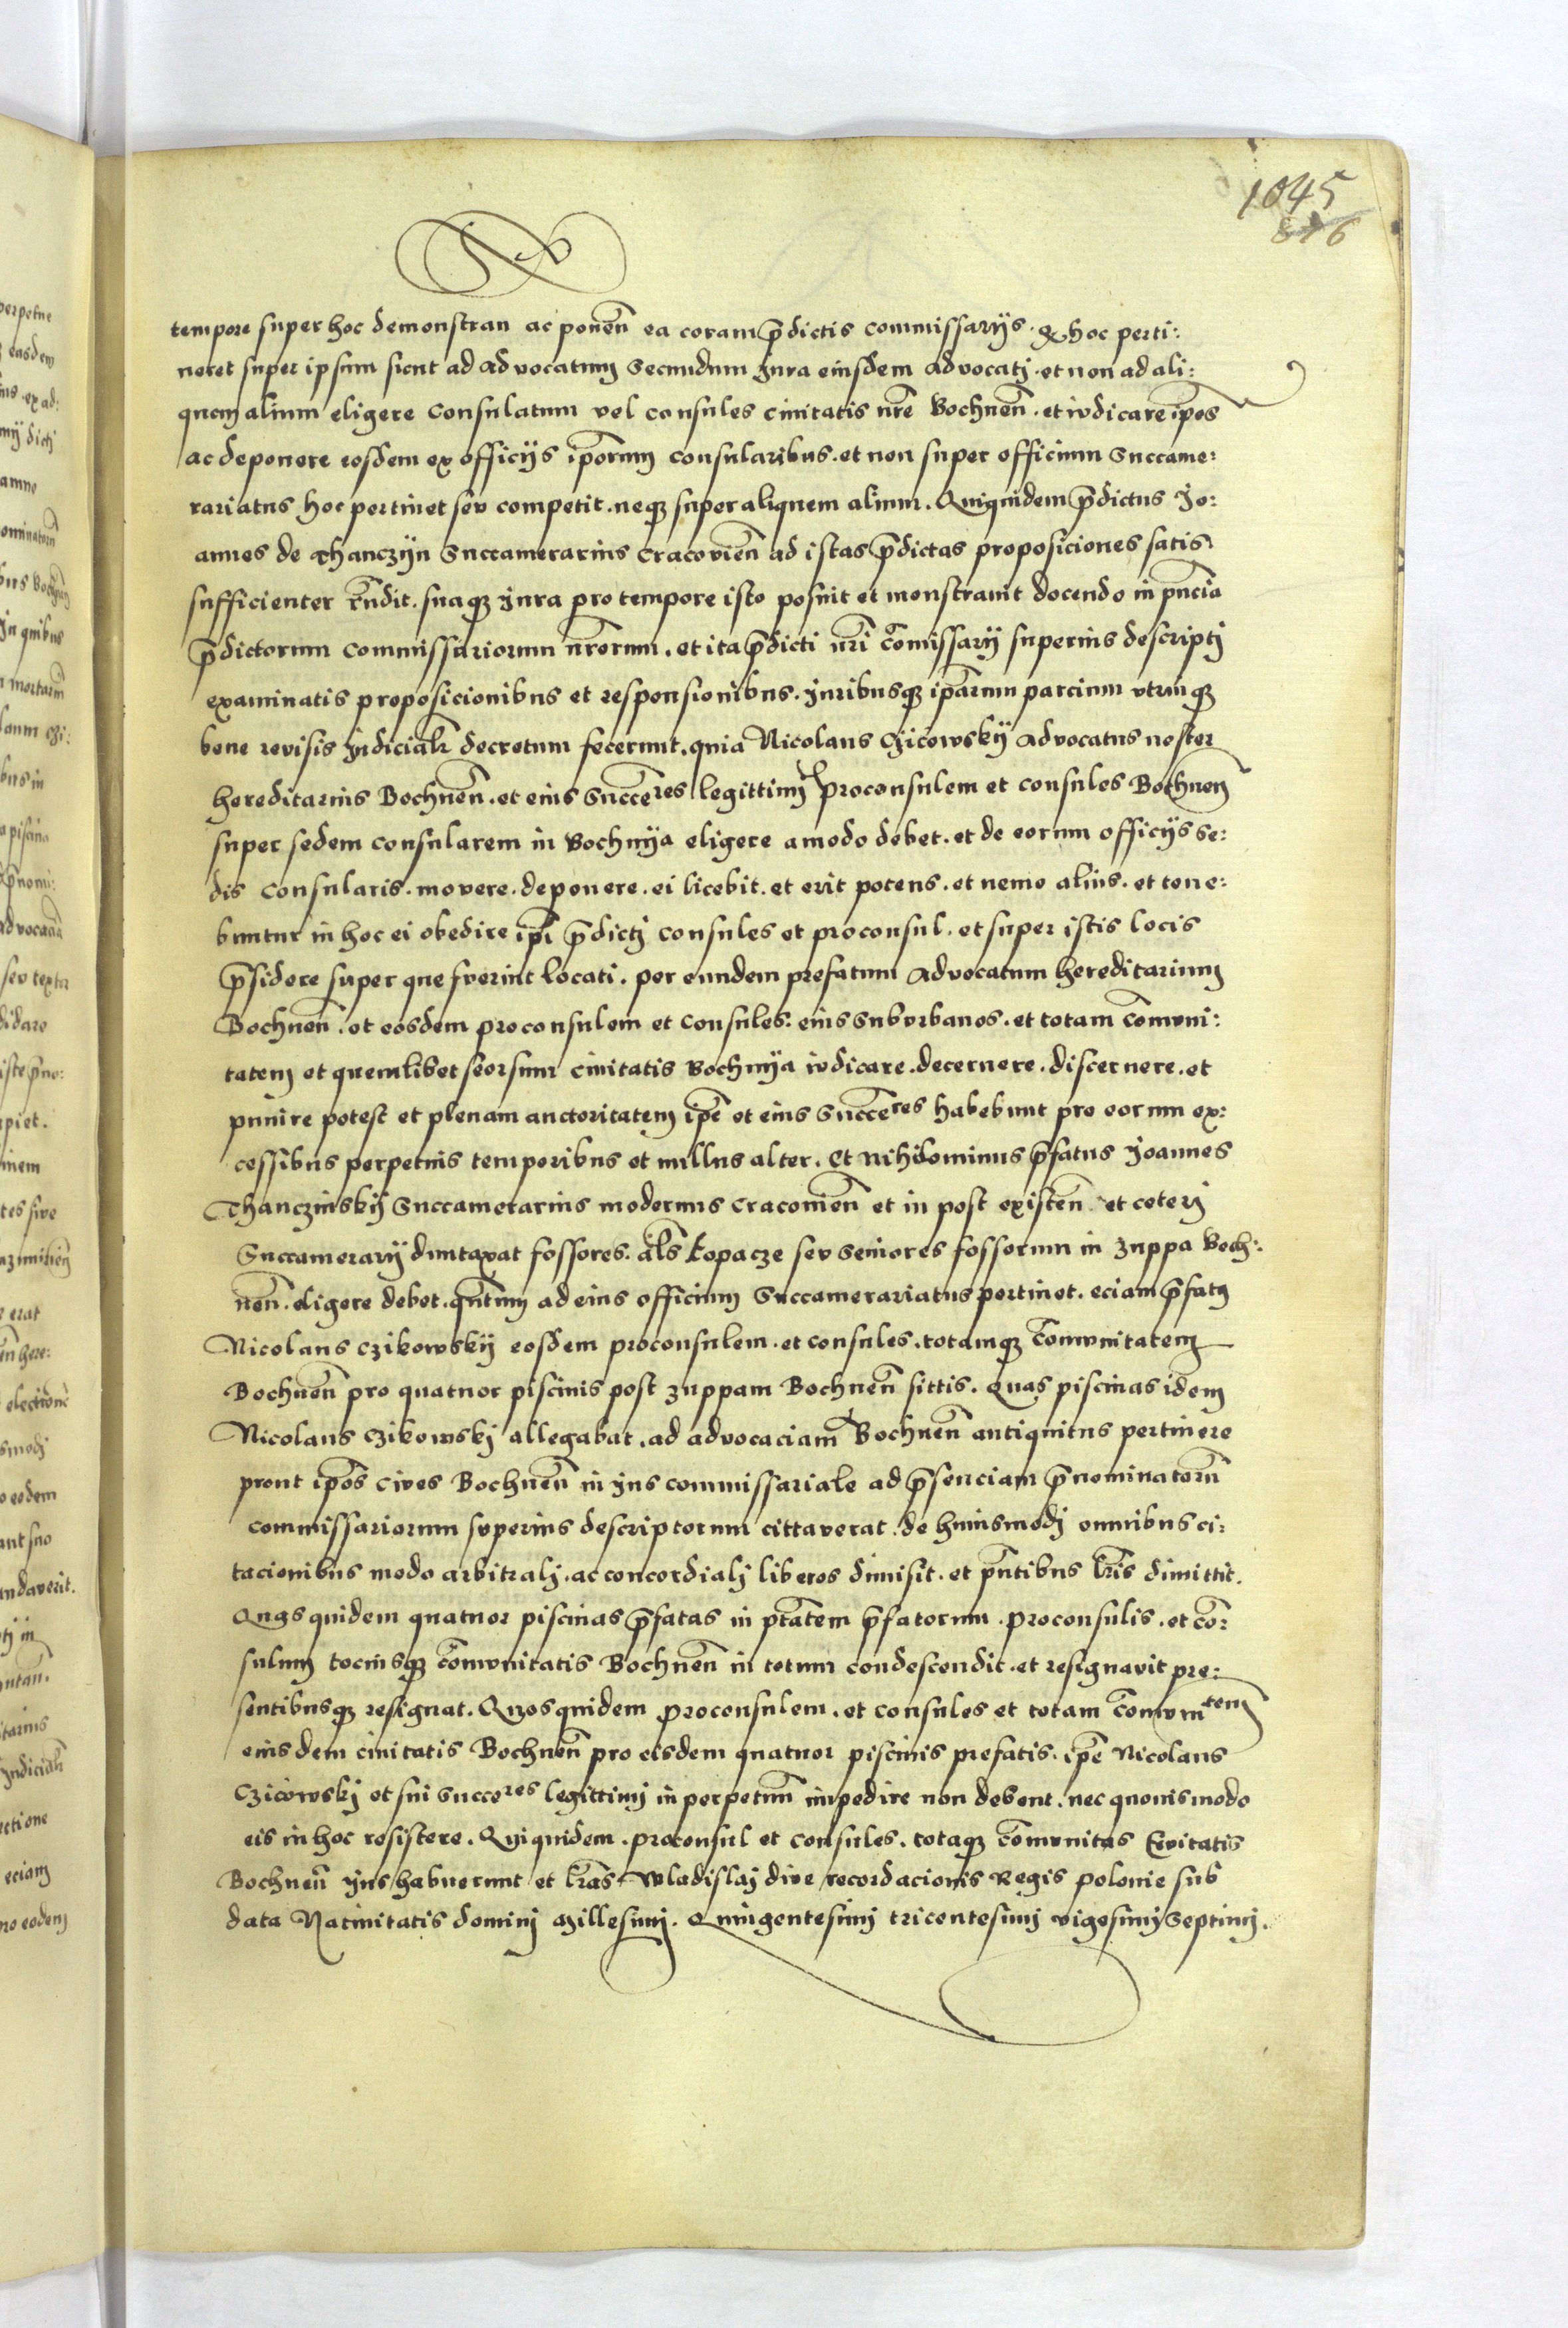 1045
816
tempore super hoc demonstran ac ponen̄ ea coram p̄dictis commissarijs. Q hoc perti:
neret super ipsum sicut ad advocatum secundum Jura eiusdem advocatj. et non ad ali:
quem alium eligere consulatum vel consules civitatis nr̄e Bochnen̄. et iudicare ip̄os
ac deponere eosdem ex officijs ip̄orum consularibus. et non super officium Succame:
rariatus hoc pertinet sev competit. neq3 super aliquem alium. Quiquidem p̄dictus Jo:
annes de Thanczÿn Succamerarius Cracovien̄ ad istas p̄dictas proposiciones satis
sufficienter r̄ndit. suaq3 Jura pro tempore isto posuit et monstravit docendo in pn̄cia
p̄dictorum commissariorum nr̄orum. et ita p̄dicti nr̄i com̄issarij superius descriptj
examinatis proposicionibus et responsionibus. Juribusq3 ip̄arum parcium vtrinq3
bene revisis Judicialr̄ decretum fecerunt. quia Nicolaus Czicowskÿ advocatus noster
hereditarius Bochnen̄. et eius Succ̄eres legittimj proconsulem et consules Bochnen̄
super sedem consularem in Bochnÿa eligere amodo debet. et de eorum officijs se:
dis consularis. movere. deponere. ei licebit. et erit potens. et nemo alius. et tene:
buntur in hoc ei obedire ip̄i p̄dictj consules et proconsul. et super istis locis
p̄sidere super que fverint locati. per eundem prefatum advocatum hereditarium
Bochnen̄. et eosdem proconsulem et consules. eius subvrbanos. et totam com̄vni:
tatem et quemlibet seorsum civitatis Bochnÿa iudicare. decernere. discernere. et
punire potest et plenam auctoritatem ip̄e et eius Succ̄eres habebunt pro eorum ex:
cessibus perpetuis temporibus et nullus alter. Et nihilominus p̄fatus Joannes
Thanczinskÿ Succamerarius modernus Cracovien̄ et in post existen̄ et ceterj
Succamerarij duntaxat fossores. al̄s kopacze sev seniores fossorum in zuppa Boch:
nen̄. eligere debet. qn̄tum ad eius officium Succamerariatus pertinet. eciam p̄fatq
Nicolaus Czikowskÿ eosdem proconsulem. et consules. totamq3 com̄vnitatem
Bochnen̄ pro quatuor piscinis post zuppam Bochnen̄ sittis. Quas piscinas idem
Nicolaus Czikowskj allegabat. ad advocaciam Bochnen̄ antiquitus pertinere
prout ip̄os cives Bochnen̄ in Jus commissariale ad p̄senciam p̄nominatorū
commissariorum superius descriptorum cittaverat. de huiusmodj omnibus ci:
tacionibus modo arbitralj. ac concordialj liberos dimisit. et pn̄tibus lr̄is dimittit.
Quas quidem quatuor piscinas p̄fatas in ptātem p̄fatorum. proconsulis. et con̄:
sulum tociusq3 com̄vnitatis Bochnen̄ in totum condescendit. et resignavit pre:
sentibusq3 resignat. Quosquidem proconsulem. et consules et totam com̄vnitem
eiusdem civitatis Bochnen̄ pro eisdem quatuor piscinis prefatis. ip̄e Nicolaus
Czicowskj et sui Succeres legittimj in perpetuū impedire non debent. nec quovismodo
eis in hoc resistere. Quiquidem. proconsul et consules. totaq3 com̄vnitas Civitatis
Bochnen̄ Jus habuerunt et lr̄as Wladislaj dive recordacionis Regis polonie sub
data Nativitatis dominj Millesimj. Quingentesimj tricentesimj vigesimj Septimj.